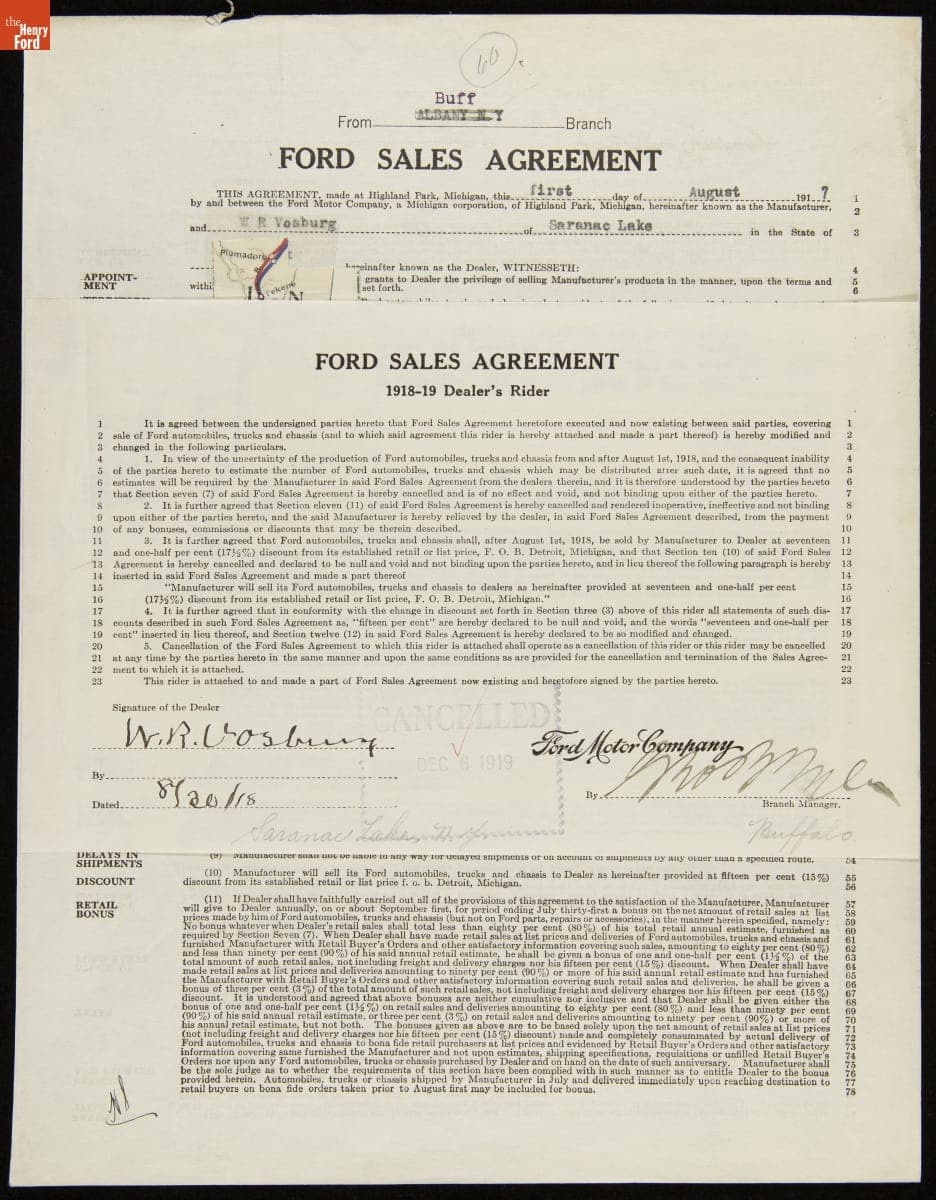 the
Henry
Ford
60
Buff
ALBANY N Y
From Branch
FORD SALES AGREEMENT
THIS AGREEMENT, made at Highland Park, Michigan, this first day of August 1917 1
by and between the Ford Motor Company, a Michigan corporation, of Highland Park, Michigan, hereinafter known as the Manufacturer, 2
and W R Vosburg of Saranac Lake in the State of 3
Plumadore
hereinafter known as the Dealer, WITNESSETH: 4
APPOINT-
MENT
withi grants to Dealer the privilege of selling Manufacturer's products in the manner, upon the terms and 5
set forth. 6
FORD SALES AGREEMENT
1918-19 Dealer's Rider
1 It is agreed between the undersigned parties hereto that Ford Sales Agreement heretofore executed and now existing between said parties, covering 1
2 sale of Ford automobiles, trucks and chassis (and to which said agreement this rider is hereby attached and made a part thereof) is hereby modified and 2
3 changed in the following particulars. 3
4 1. In view of the uncertainty of the production of Ford automobiles, trucks and chassis from and after August 1st, 1918, and the consequent inability 4
5 of the parties hereto to estimate the number of Ford automobiles, trucks and chassis which may be distributed after such date, it is agreed that no 5
6 estimates will be required by the Manufacturer in said Ford Sales Agreement from the dealers therein, and it is therefore understood by the parties hereto 6
7 that Section seven (7) of said Ford Sales Agreement is hereby cancelled and is of no effect and void, and not binding upon either of the parties hereto. 7
8 2. It is further agreed that Section eleven (11) of said Ford Sales Agreement is hereby cancelled and rendered inoperative, ineffective and not binding 8
9 upon either of the parties hereto, and the said Manufacturer is hereby relieved by the dealer, in said Ford Sales Agreement described, from the payment 9
10 of any bonuses, commissions or discounts that may be therein described. 10
11 3. It is further agreed that Ford automobiles, trucks and chassis shall, after August 1st, 1918, be sold by Manufacturer to Dealer at seventeen 11
12 and one-half per cent (17½%) discount from its established retail or list price, F. O. B. Detroit, Michigan, and that Section ten (10) of said Ford Sales 12
13 Agreement is hereby cancelled and declared to be null and void and not binding upon the parties hereto, and in lieu thereof the following paragraph is hereby 13
14 inserted in said Ford Agreement and made a part thereof 14
15 "Manufacturer will sell its Ford automobiles, trucks and chassis to dealers as hereinafter provided at seventeen and one-half per cent 15
16 (17½%) discount from its established retail or list price, F. O. B. Detroit, Michigan." 16
17 4. It is further agreed that in conformity with the change in discount set forth in Section three (3) above of this rider all statements of such dis- 17
18 counts described in such Ford Sales Agreement as, "fifteen per cent" are hereby declared to be null and void, and the words "seventeen and one-half per 18
19 cent" inserted in lieu thereof, and Section twelve (12) in said Ford Sales Agreement is hereby declared to be so modified and changed. 19
20 5. Cancellation of the Ford Sales Agreement to which this rider is attached shall operate as a cancellation of this rider or this rider may be cancelled 20
21 at any time by the parties hereto in the same manner and upon the same conditions as are provided for the cancellation and termination of the Sales Agree- 21
22 ment to which it is attached. 22
23 This rider is attached to and made a part of Ford Sales Agreement now existing and heretofore signed by the parties hereto. 23
Signature of the Dealer
W. R. Vosburg
CANCELLED
DEC 6 1919
Ford Motor Company
By
By
Dated 8/20/18
Branch Manager.
Saranac Lake N.Y
Buffalo
DELAYS IN
SHIPMENTS
(9) Manufacturer shall not be liable in any way for delayed shipments or on account of shipments by any other than a specified route. 54
DISCOUNT
(10) Manufacturer will sell its Ford automobiles, trucks and chassis to Dealer as hereinafter provided at fifteen per cent (15%) 55
discount from its established retail or list price f. o. b. Detroit, Michigan. 56
RETAIL
BONUS
(11) If Dealer shall have faithfully carried out all of the provisions of this agreement to the satisfaction of the Manufacturer, Manufacturer 57
will give to Dealer annually, on or about September first, for period ending July thirty-first a bonus on the net amount of retail sales at list 58
prices made by him of Ford automobiles, trucks and chassis (but not on Ford parts, repairs or accessories), in the manner herein specified, namely: 59
No bonus whatever when Dealer's retail sales shall total less than eighty per cent (80%) of his total retail annual estimate, furnished as 60
required by Section Seven (7). When Dealer shall have made retail sales at list prices and deliveries of Ford automobiles, trucks and chassis and 61
furnished Manufacturer with Retail Buyer's Orders and other satisfactory information covering such sales, amounting to eighty per cent (80%) 62
and less than ninety per cent (90%) of his said annual retail estimate, he shall be given a bonus of one and one-half per cent (1½%) of the 63
total amount of such retail sales, not including freight and delivery charges nor his fifteen per cent (15%) discount. When Dealer shall have 64
made retail sales at list prices and deliveries amounting to ninety per cent (90%) or more of his said annual retail estimate and has furnished 65
the Manufacturer with Retail Buyer's Orders and other satisfactory information covering such retail sales and deliveries, he shall be given a 66
bonus of three per cent (3%) of the total amount of such retail sales, not including freight and delivery charges nor his fifteen per cent (15%) 67
discount. It is understood and agreed that above bonuses are neither cumulative nor inclusive and that Dealer shall be given either the 68
bonus of one and one-half per cent (1½%) on retail sales and deliveries amounting to eighty per cent (80%) and less than ninety per cent 69
(90%) of his said annual retail estimate, or three per cent (3%) on retail sales and deliveries amounting to ninety per cent (90%) or more of 70
his annual retail estimate, but not both. The bonuses given as above are to be based solely upon the net amount of retail sales at list prices 71
(not including freight and delivery charges nor his fifteen per cent (15%) discount) made and completely consummated by actual delivery of 72
Ford automobiles, trucks and chassis to bona fide retail purchasers at list prices and evidenced by Retail Buyer's Orders and other satisfactory 73
information covering same furnished the Manufacturer and not upon estimates, shipping specifications, requisitions or unfilled Retail Buyer's 74
Orders nor upon any Ford automobiles, trucks or chassis purchased by Dealer and on hand on the date of such anniversary. Manufacturer shall 75
be the sole judge as to whether the requirements of this section have been complied with in such manner as to entitle Dealer to the bonus 76
provided herein. Automobiles, trucks or chassis shipped by Manufacturer in July and delivered immediately upon reaching destination to 77
retail buyers on bona fide orders taken prior to August first may be included for bonus. 78